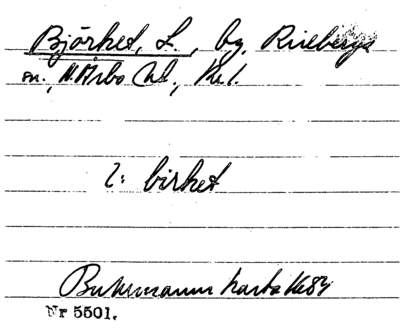 Björket, L., by, Riseberga
sn., N. Åsbo hd., Kr. l.
l: birket
Buhrmanns karta 1684
Nr 5501.